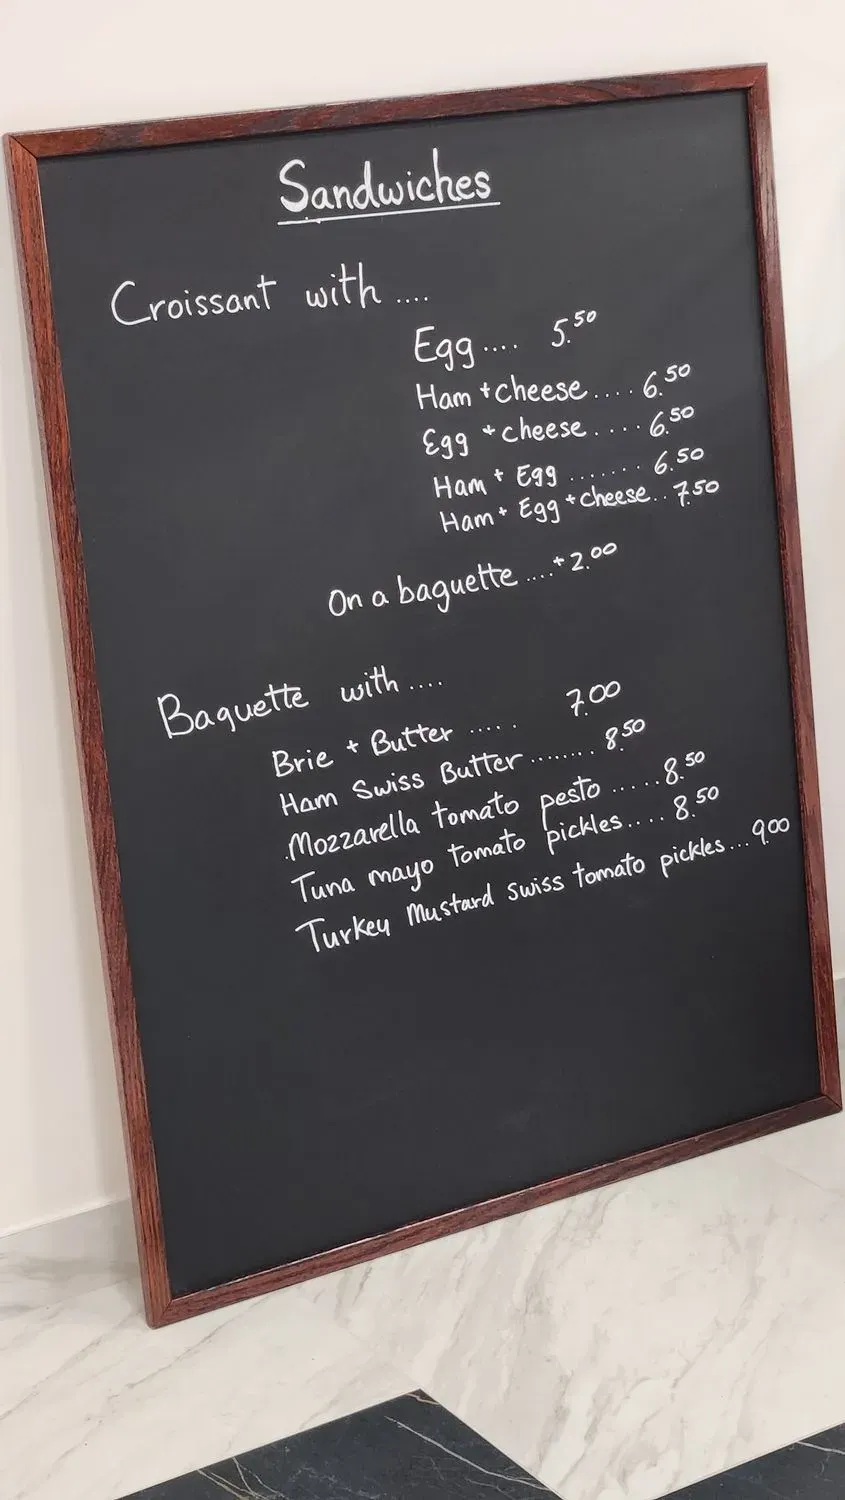 Sandwiches
Croissant with ....
Egg .... 5.50
Ham + cheese .... 6.50
Egg + cheese .... 6.50
Ham + Egg ....... 6.50
Ham + Egg + cheese .. 7.50
On a baguette .... + 2.00
Baguette with ....
Brie + Butter ..... 7.00
Ham Swiss Butter ........ 8.50
Mozzarella tomato pesto ..... 8.50
Tuna mayo tomato pickles .... 8.50
Turkey Mustard swiss tomato pickles ... 9.00